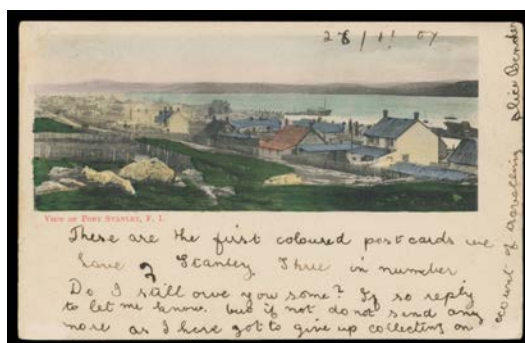 28/11 07
VIEW OF PORT STANLEY, F. I.
These are the first coloured postcards we
have of Stanley. Three in number
Do I still owe you some? If so reply
to let me know. but if not do not send any
more as I have got to give up collecting on
account of travelling Alice Bender